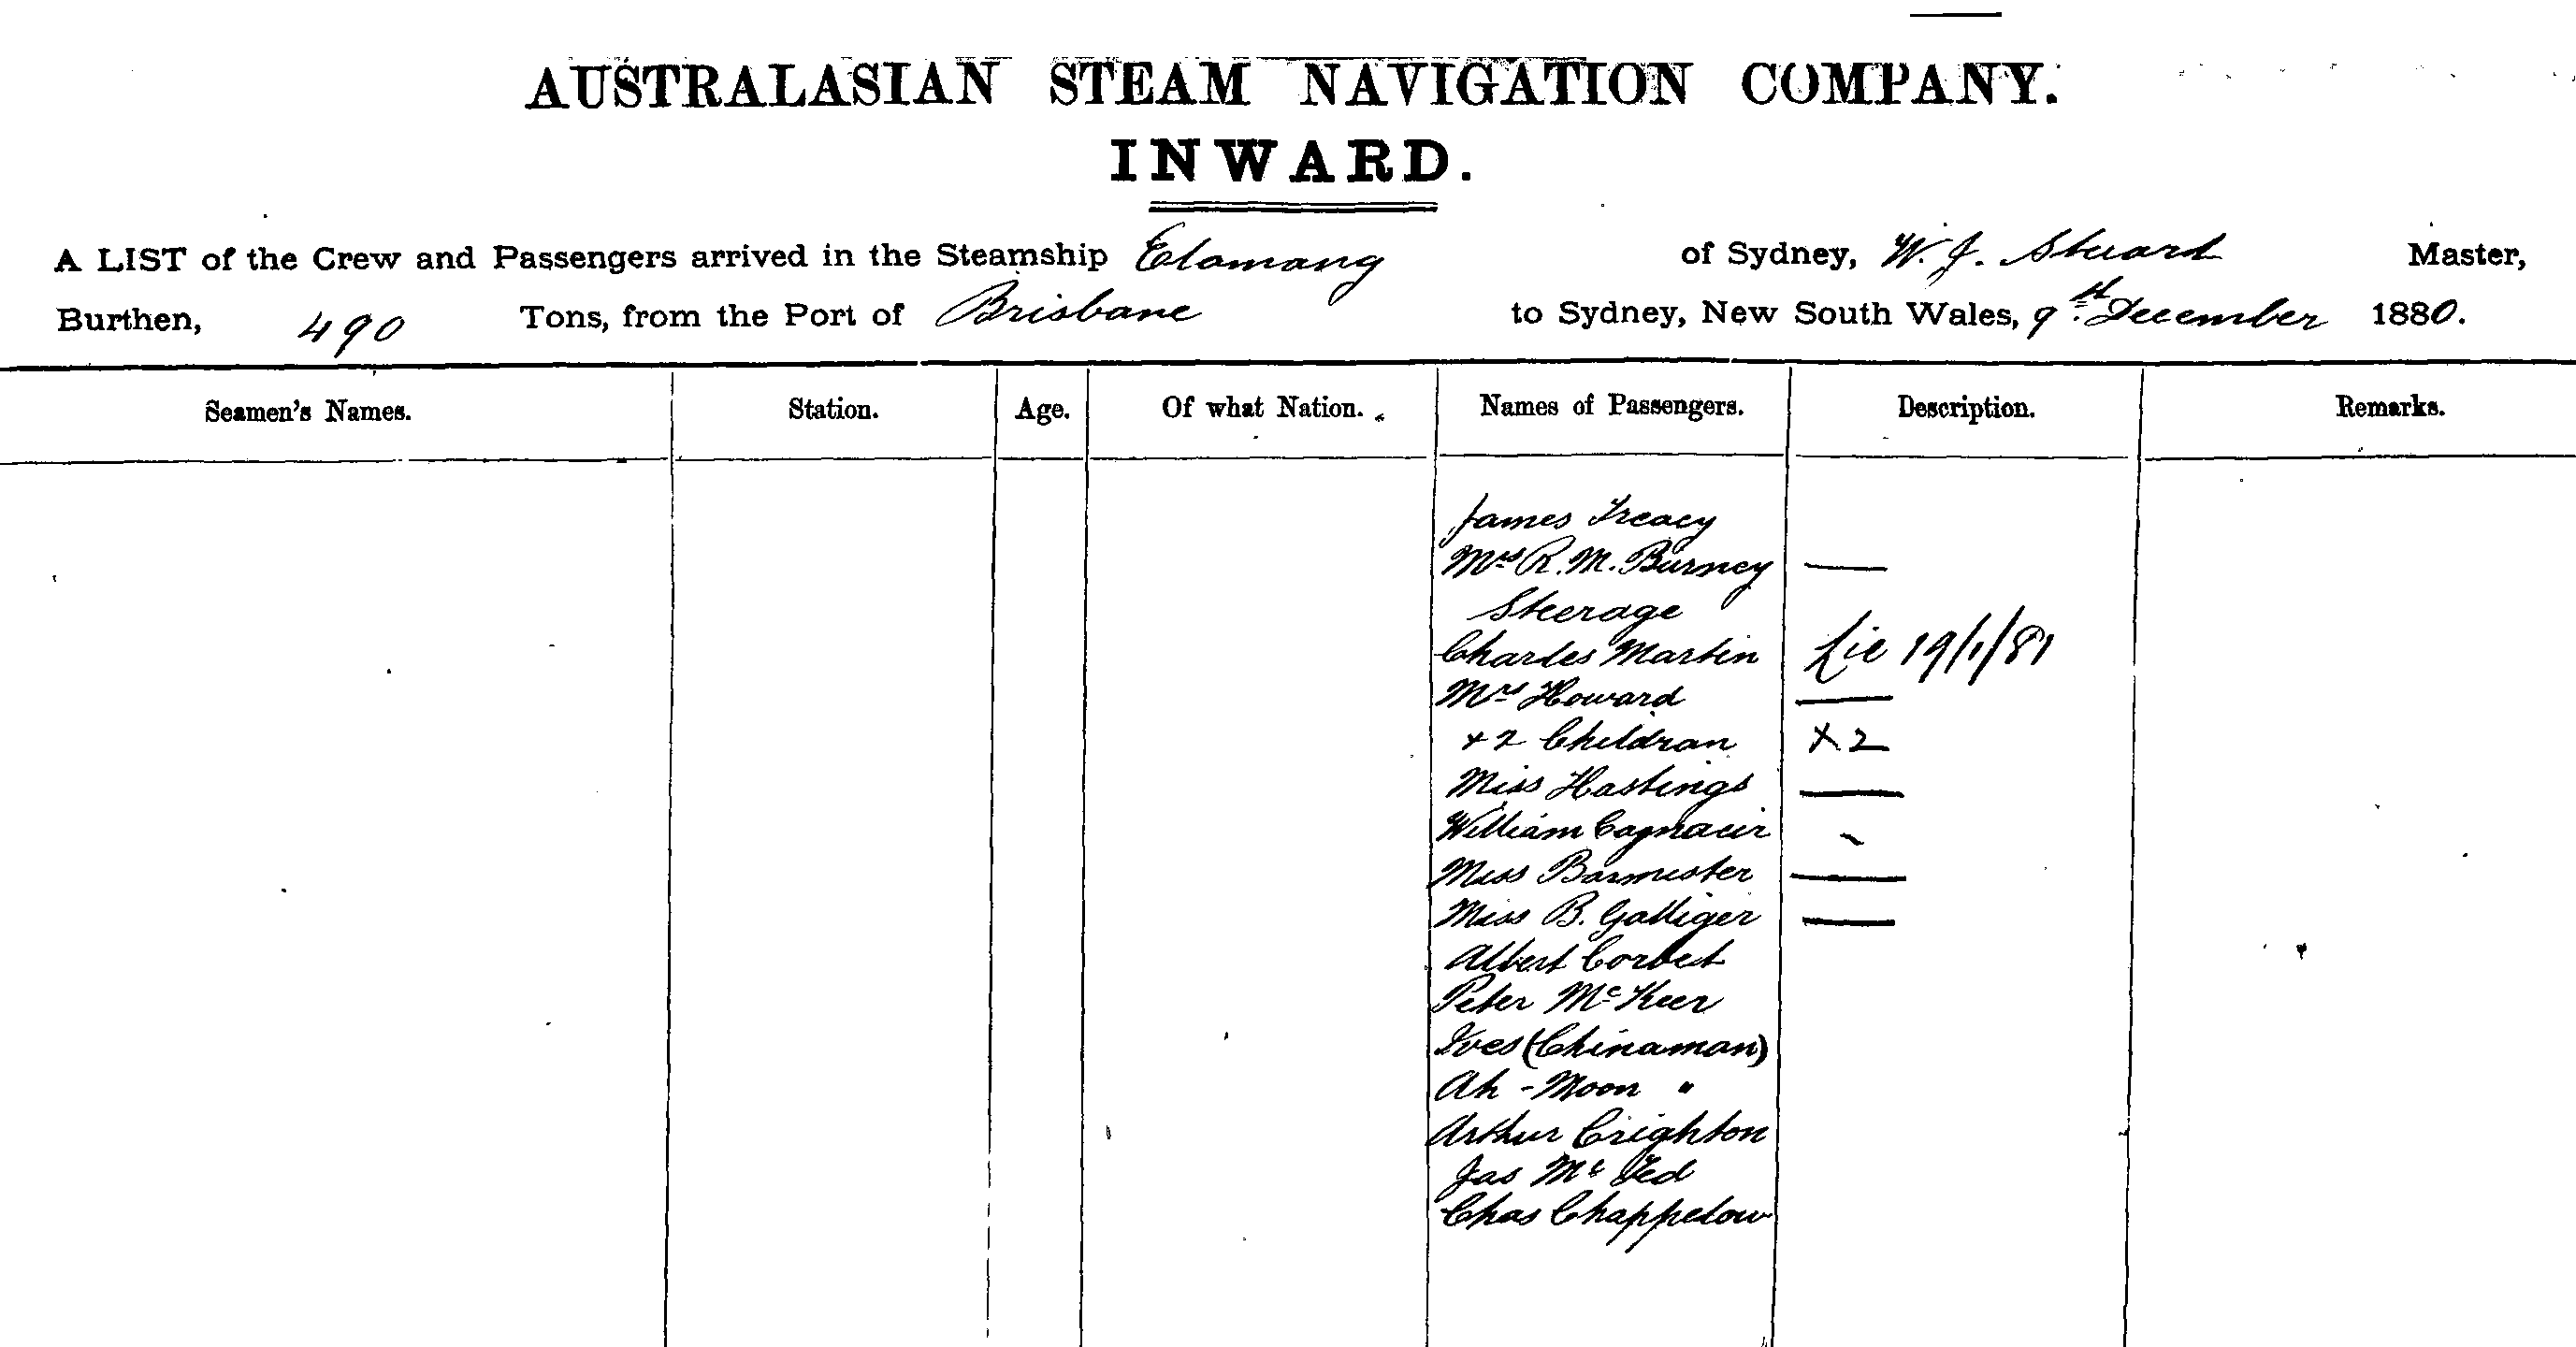 AUSTRALASIAN STEAM NAVIGATION COMPANY.
INWARD.
A LIST of the Crew and Passengers arrived in the Steamship Elamang of Sydney, W. J. Stuart Master,
Burthen, 490 Tons, from the Port of Brisbane to Sydney, New South Wales, 9th December 1880.
Seamen's Names. Station. Age. Of what Nation. Names of Passengers. Description. Remarks.
James Treacy
Mrs R. M. Burney —
Steerage
Charles Martin 19/1/81
Mrs Howard —
+ 2 Children X 2
Miss Hastings —
William
Miss Barmister —
Miss B. Galliger —
Albert Corbet
Peter McKeer
Ives (Chinaman)
Ah - Moon "
Arthur Crighton
Jas Mc
Chas Chappelow